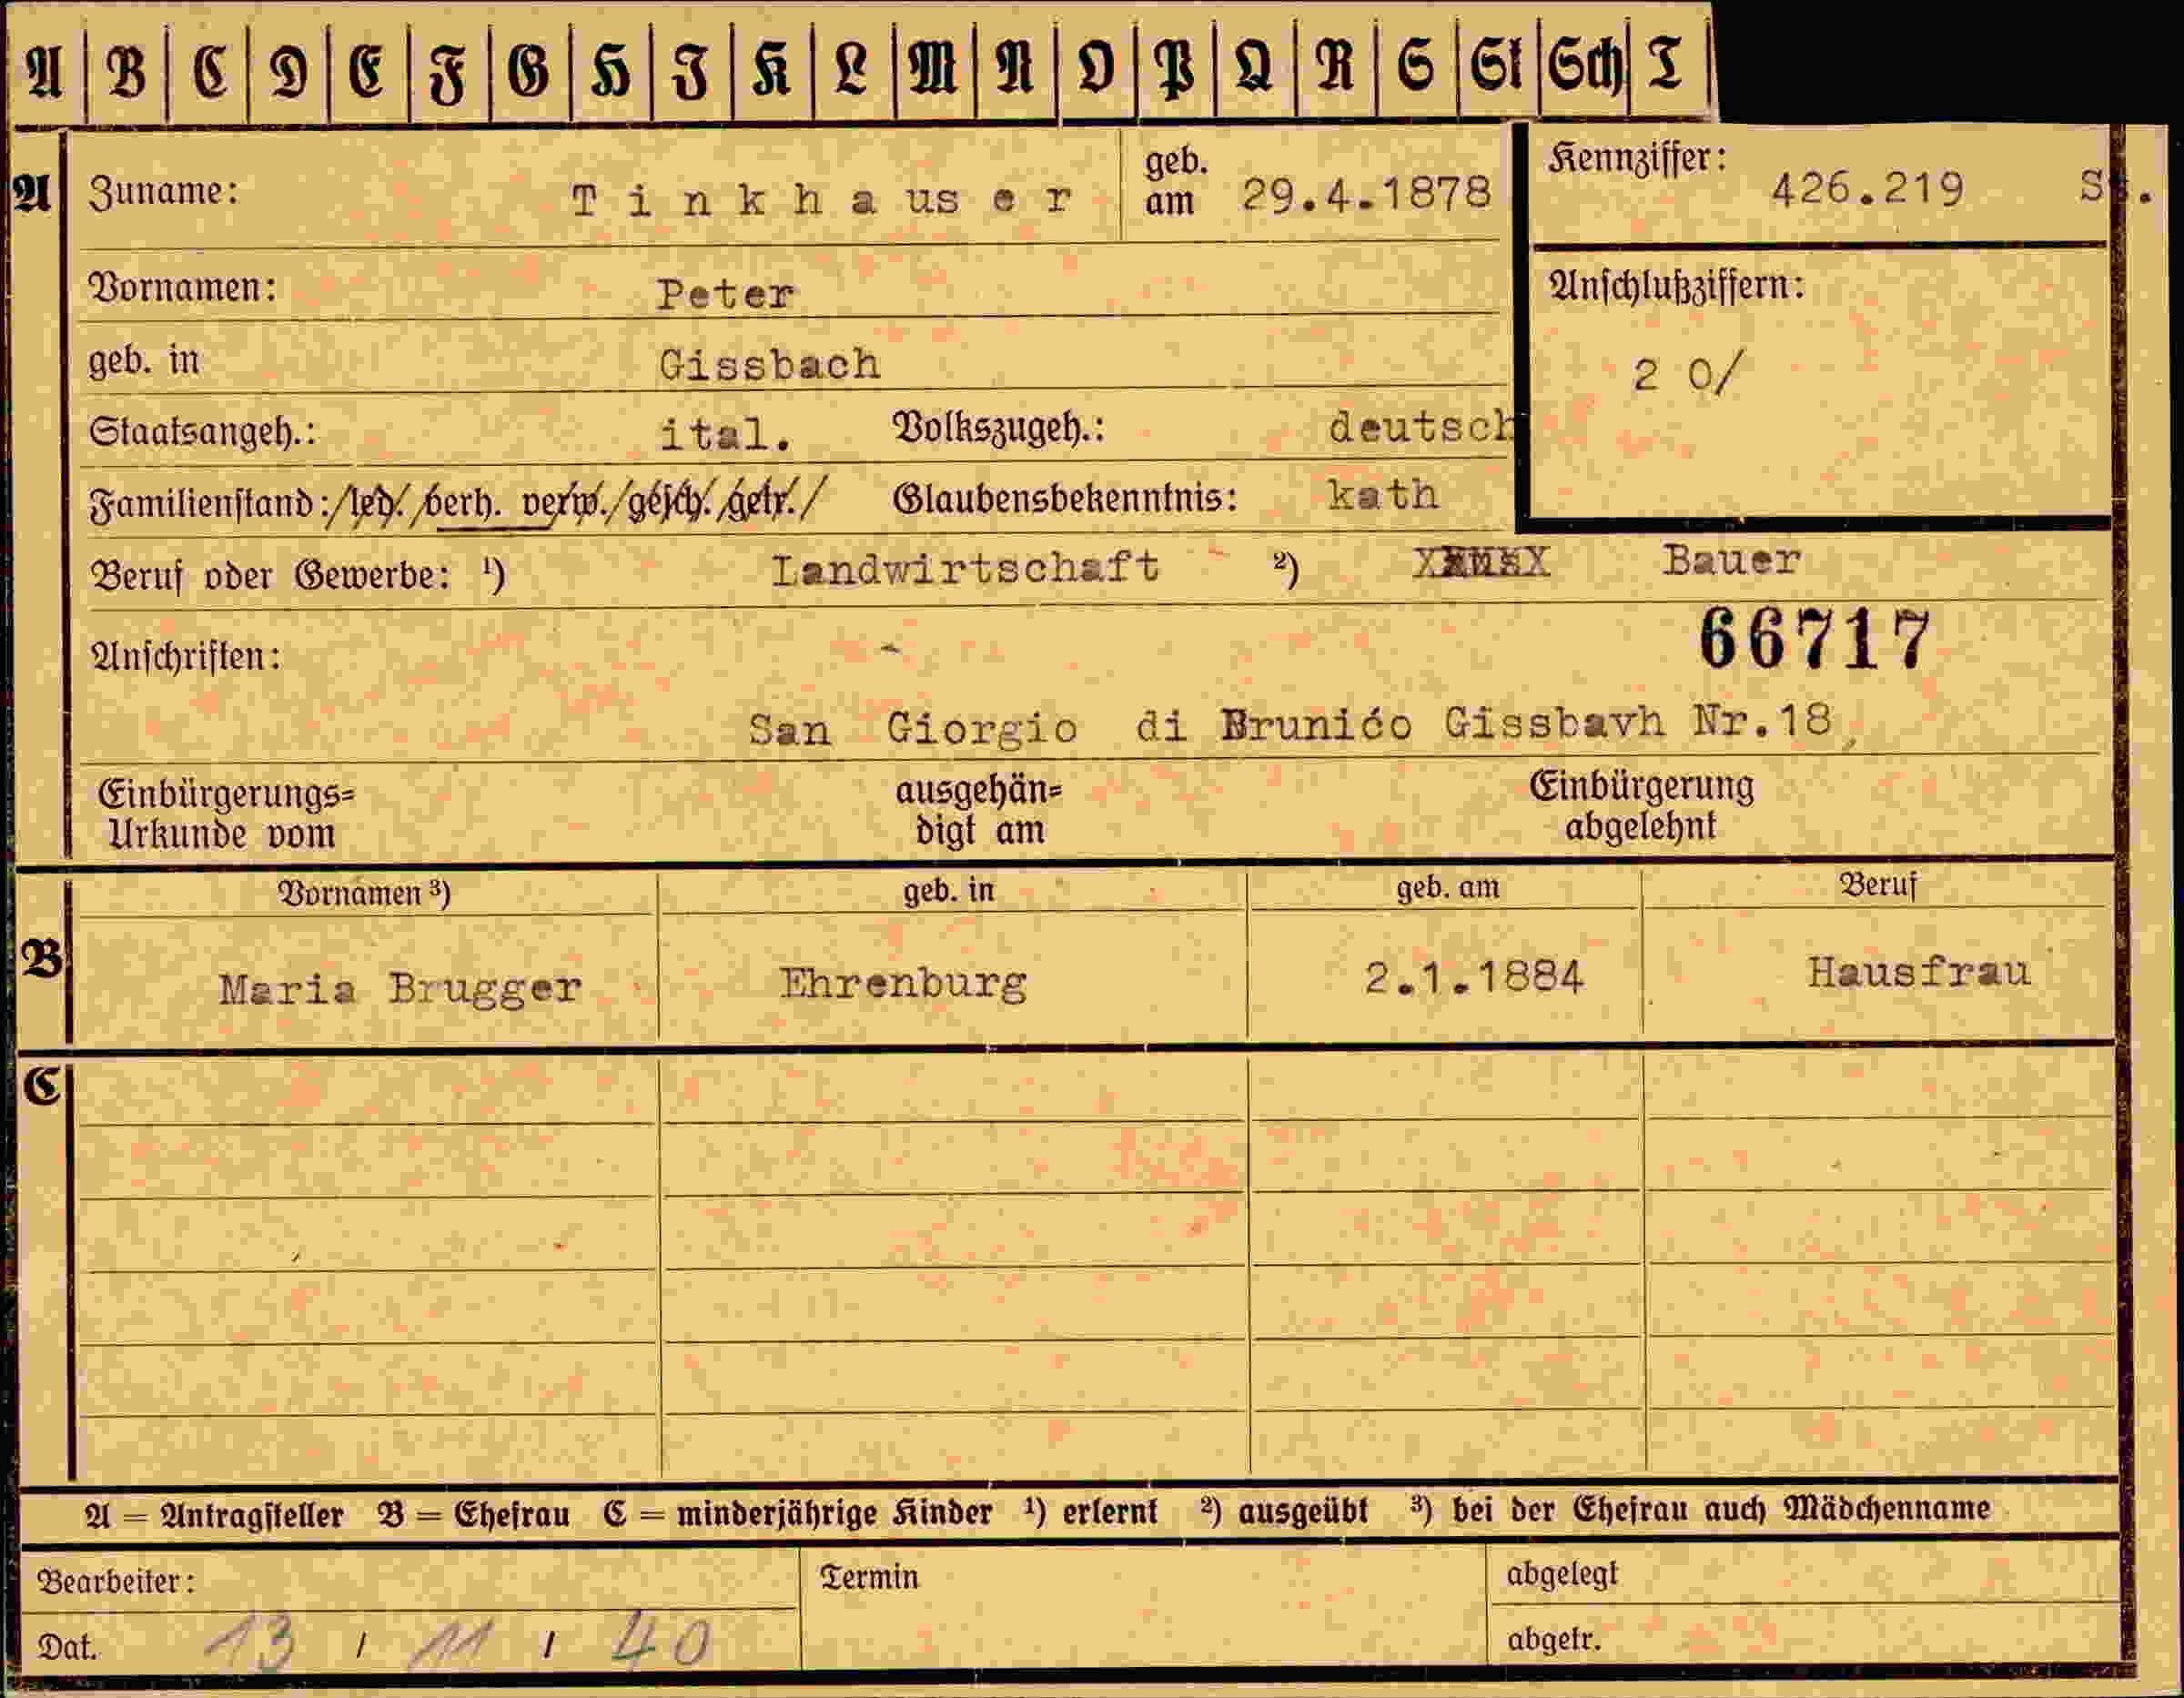 A B C D E F G H J K L M N O P Q R S St Sch T
A Zuname: Tinkhauser geb. am 29.4.1878 Kennziffer: 426.219
Vornamen: Peter Anschlußziffern:
geb. in Gissbach 2 0/
Staatsangeh.: ital. Volkszugeh.: deutsch
Familienstand: /led./verh. verw./gesch./getr./ Glaubensbekenntnis: kath
Beruf oder Gewerbe: ¹) Landwirtschaft ²) Bauer
Anschriften: 66717
San Giorgio di Brunico Gissbavh Nr.18
Einbürgerungs= ausgehän= Einbürgerung
Urkunde vom digt am abgelehnt
Vornamen ³) geb. in geb. am Beruf
B Maria Brugger Ehrenburg 2.1.1884 Hausfrau
C
A = Antragsteller B = Ehefrau C = minderjährige Kinder ¹) erlernt ²) ausgeübt ³) bei der Ehefrau auch Mädchenname
Bearbeiter: Termin abgelegt
Dat. 13 / 11 / 40 abgetr.